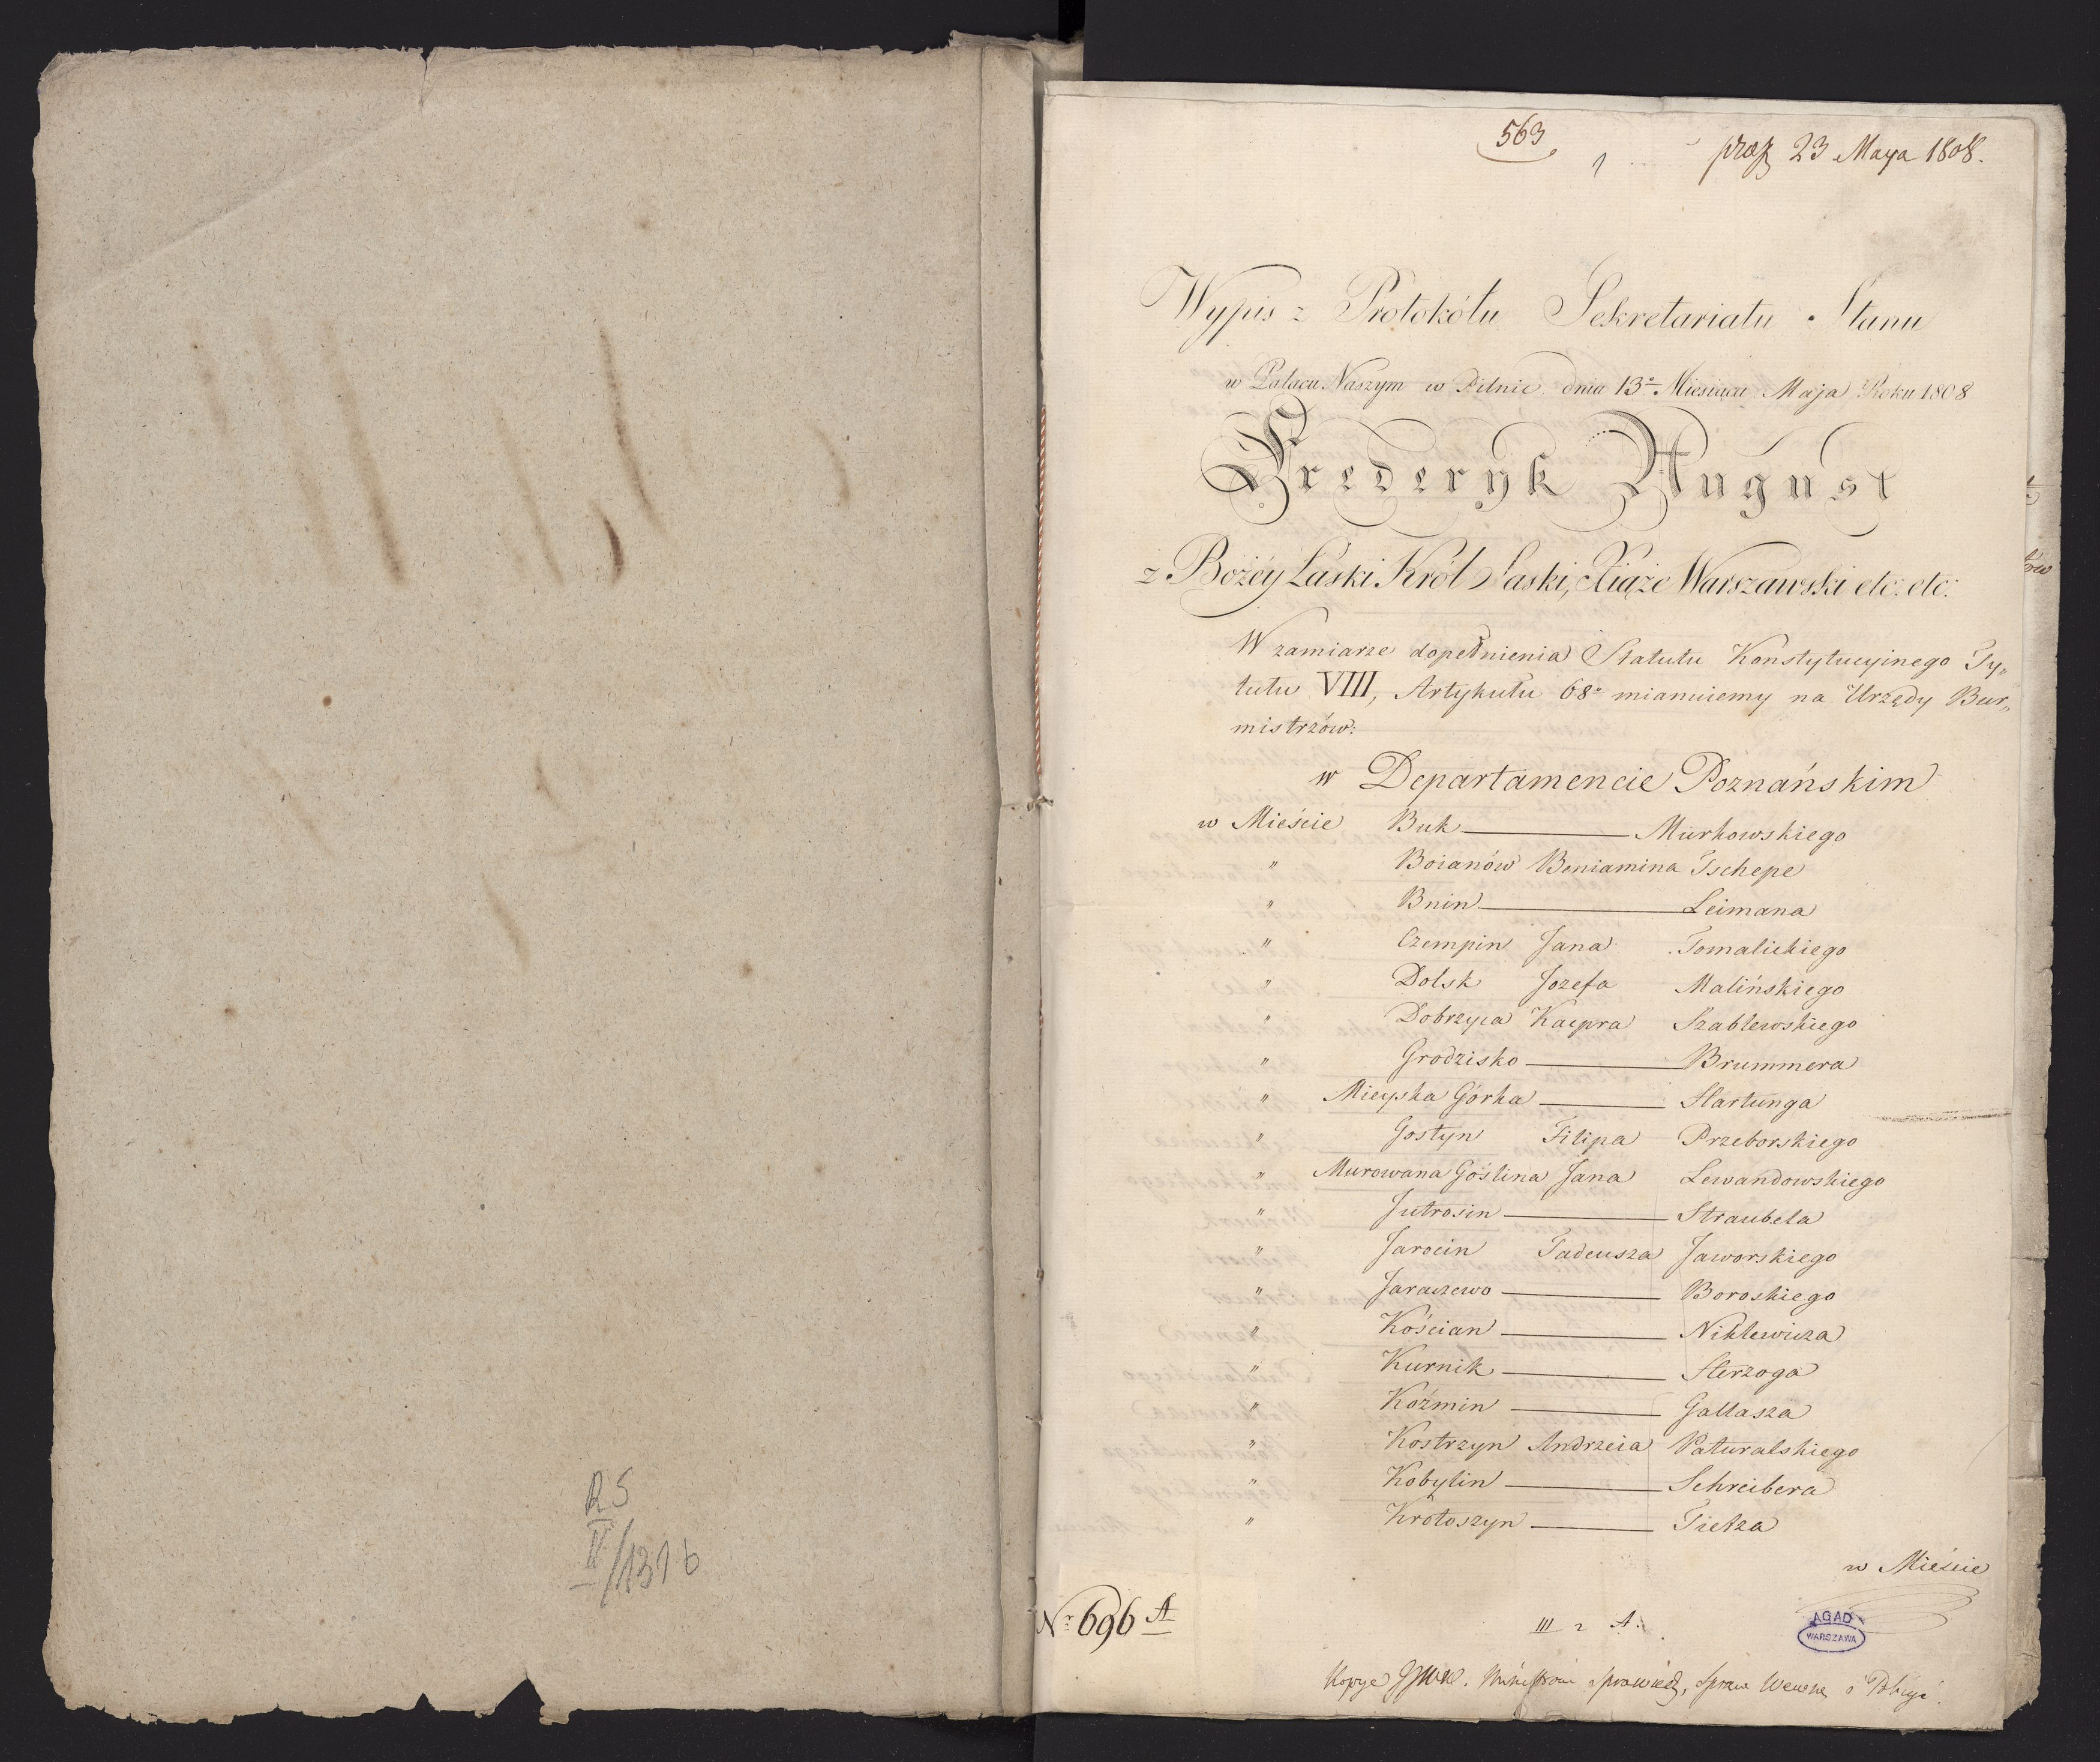 RS
II/1316
563
1
prez 23 Maya 1808.
Wypis z Protokółu Sekretariatu Stanu
w Pałacu Naszym w Pilnic dnia 13º Miesiąca Maja Roku 1808
Frederyk August
z Bożéy Łaski Król Saski, Xiąże Warszawski etc: etc:
W zamiarze dopełnienia Statutu Konstytucyinego Ty„
tułu VIII, Artykułu 68º mianuiemy na Urzędy Bur„
mistrzów:
w Departamencie Poznańskim
w Mieście Buk ——— Murkowskiego
" Boianów Beniamina Tschepe
" Bnin ——— Leimana
" Czempin Jana Tomalickiego
" Dolsk Jozefa Malińskiego
" Dobrzyca Kacpra Szablewskiego
" Grodzisko ——— Brummera
" Mieyska Górka ——— Hartunga
" Gostyn Filipa Przeborskiego
" Murowana Goślina Jana Lewandowskiego
" Jutrosin ——— Straubela
" Jarocin Tadeusza Jaworskiego
" Jaraczewo ——— Boroskiego
" Kościan ——— Niklewicza
" Kurnik ——— Herzoga
" Koźmin ——— Gallasza
" Kostrzyn Andrzeia Paturalskiego
" Kobylin ——— Schreibera
" Krotoszyn ——— Tietza
w Mieście
Nº 696 A
III 2 A.
AGAD
WARSZAWA
Kopye JJWW. Ministrom Sprawied, Spraw Wewnę i Policyi.